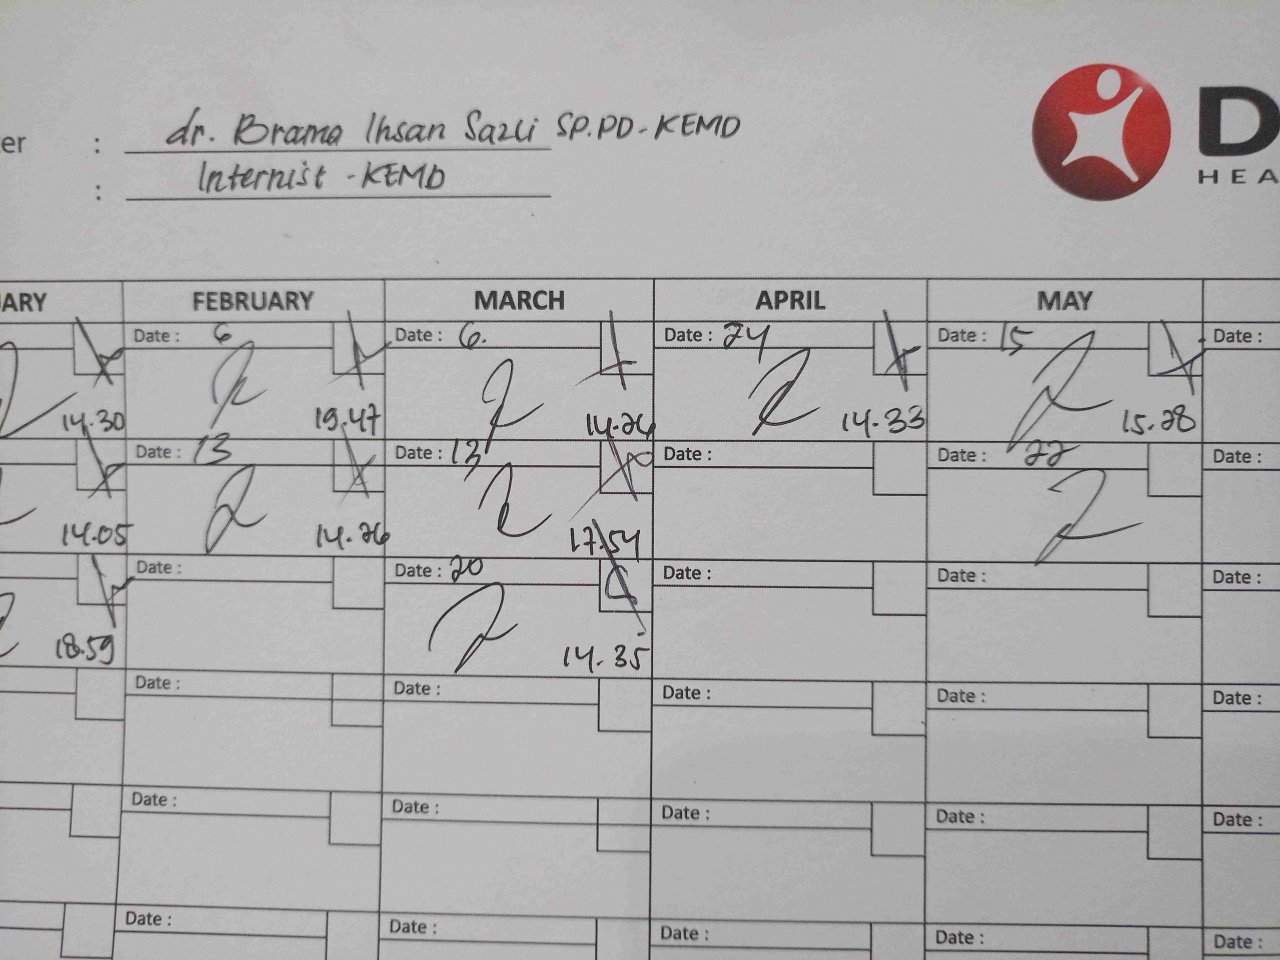 er : dr. Brama Ihsan Sazli SP.PD-KEMD
: Internist -KEMD
D
HEA
ARY FEBRUARY MARCH APRIL MAY
Date : 6 Date : 6. Date : 24 Date : 15 Date :
14.30 19.47 14.26 14.33 15.28
Date : 13 Date : 13 Date : Date : 22 Date :
14.05 14.26 17.54
Date : Date : 20 Date : Date : Date :
18.59 14.35
Date : Date : Date : Date : Date :
Date : Date : Date : Date : Date :
Date : Date : Date : Date : Date :